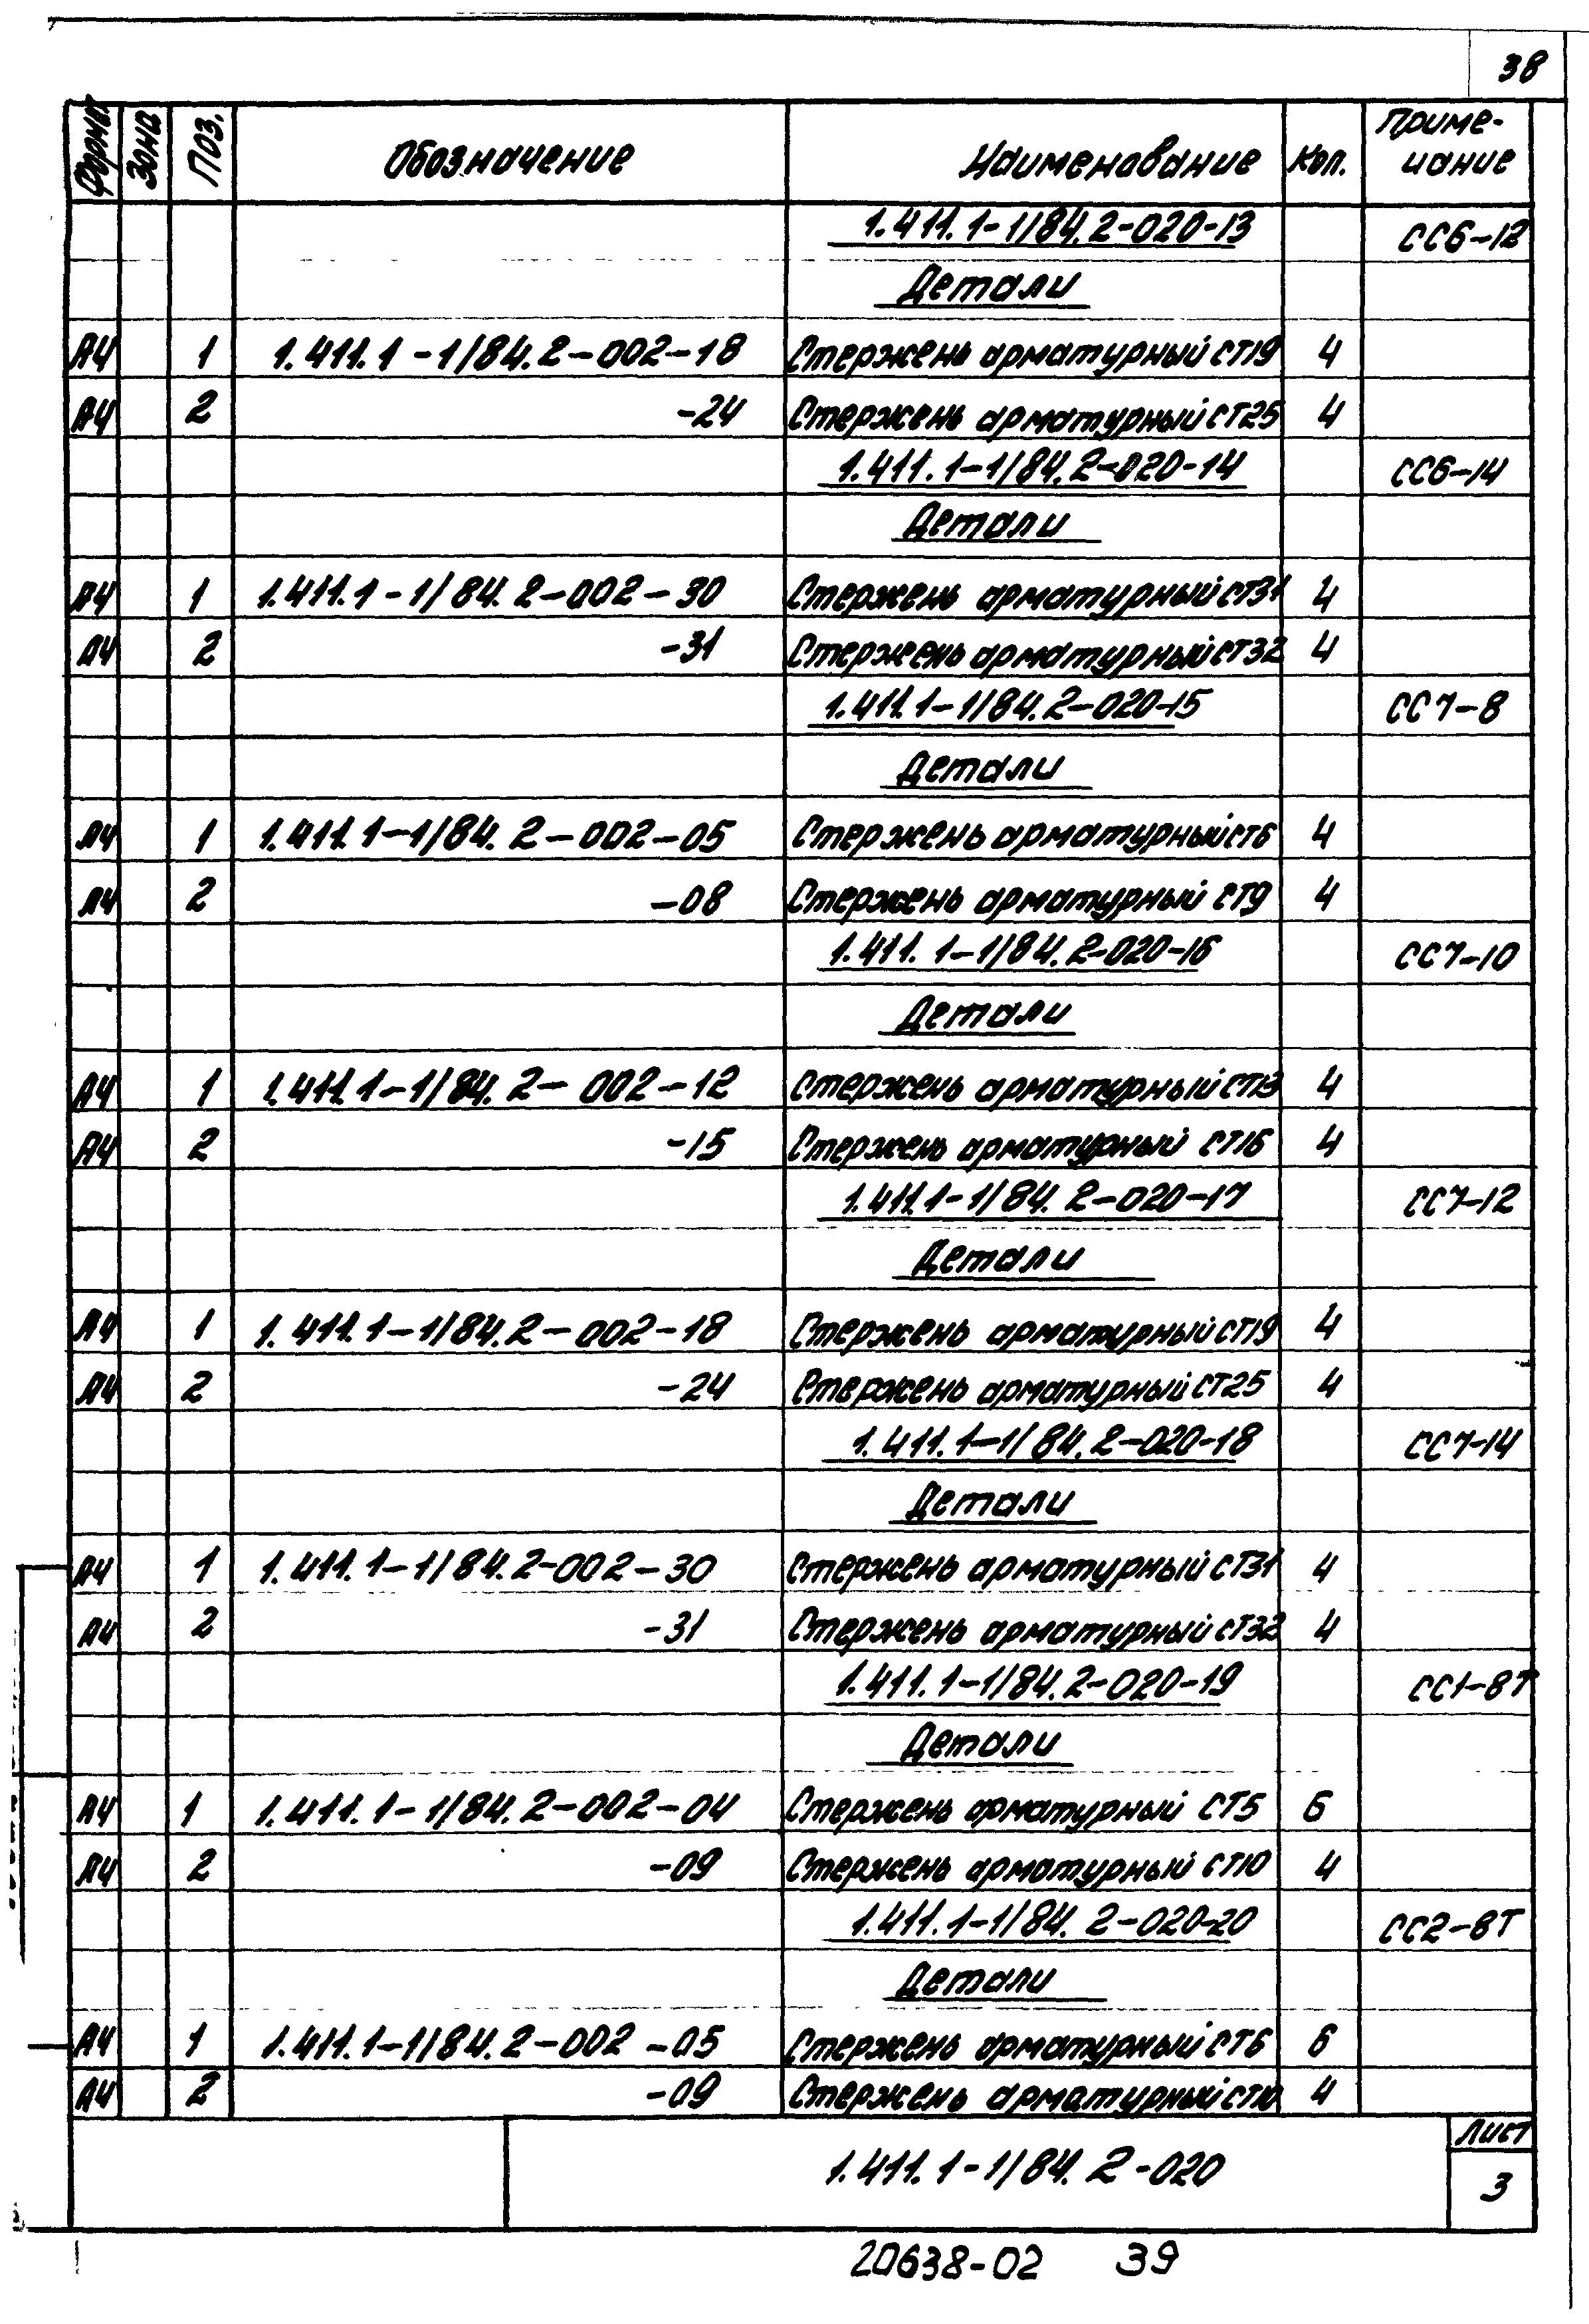 38
Формат Зона Поз. Обозначение Наименование Кол. Приме-
чание
1.411.1-1/84.2-020-13 СС6-12
Детали
А4 1 1.411.1-1/84.2-002-18 Стержень арматурный СТ19 4
А4 2 -24 Стержень арматурный СТ25 4
1.411.1-1/84.2-020-14 СС6-14
Детали
А4 1 1.411.1-1/84.2-002-30 Стержень арматурный СТ31 4
А4 2 -31 Стержень арматурный СТ32 4
1.411.1-1/84.2-020-15 СС7-8
Детали
А4 1 1.411.1-1/84.2-002-05 Стержень арматурный СТ6 4
А4 2 -08 Стержень арматурный СТ9 4
1.411.1-1/84.2-020-16 СС7-10
Детали
А4 1 1.411.1-1/84.2-002-12 Стержень арматурный СТ13 4
А4 2 -15 Стержень арматурный СТ16 4
1.411.1-1/84.2-020-17 СС7-12
Детали
А4 1 1.411.1-1/84.2-002-18 Стержень арматурный СТ19 4
А4 2 -24 Стержень арматурный СТ25 4
1.411.1-1/84.2-020-18 СС7-14
Детали
А4 1 1.411.1-1/84.2-002-30 Стержень арматурный СТ31 4
А4 2 -31 Стержень арматурный СТ32 4
1.411.1-1/84.2-020-19 СС1-8Т
Детали
А4 1 1.411.1-1/84.2-002-04 Стержень арматурный СТ5 6
А4 2 -09 Стержень арматурный СТ10 4
1.411.1-1/84.2-020-20 СС2-8Т
Детали
А4 1 1.411.1-1/84.2-002-05 Стержень арматурный СТ6 6
А4 2 -09 Стержень арматурный СТ10 4
1.411.1-1/84.2-020
Лист
3
20638-02 39